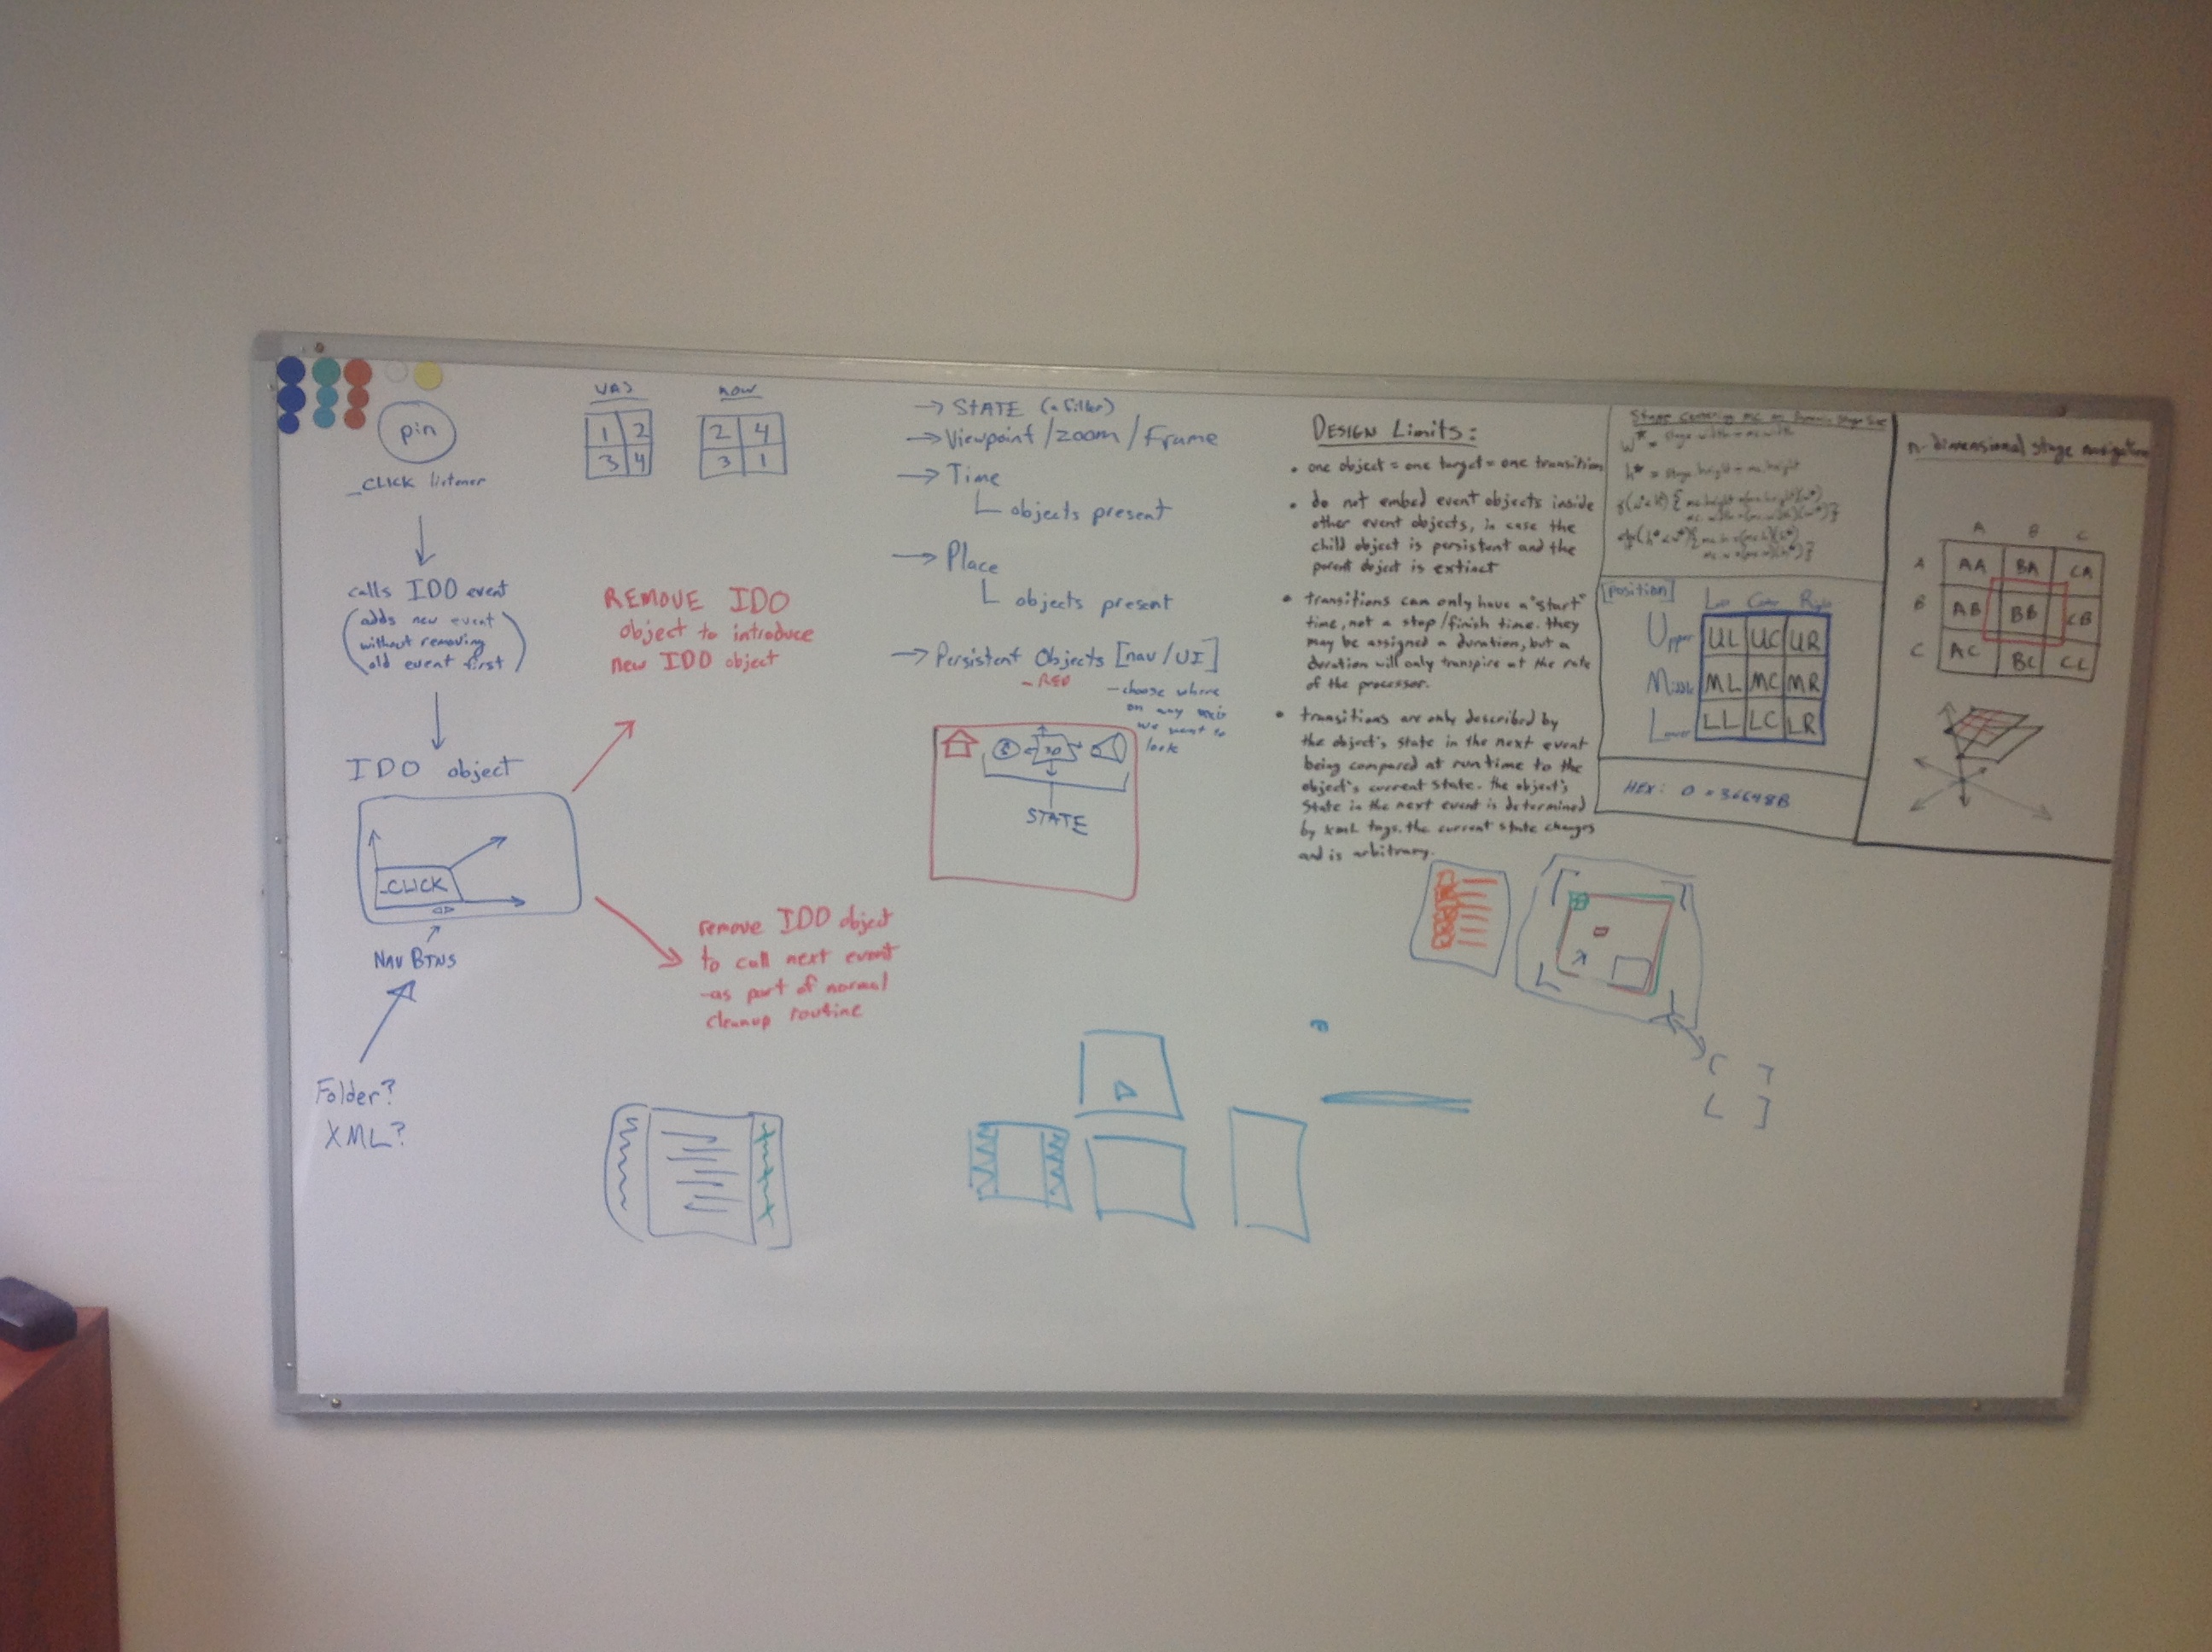 pin
_CLICK listener
calls IDO event
(adds new event
without removing
old event first)
IDO object
_CLICK
NAV BTNS
Folder?
XML?
was
1 2
3 4
now
2 4
3 1
REMOVE IDO
object to introduce
new IDO object
remove IDO object
to call next event
-as part of normal
cleanup routine
→ STATE (a filter)
→ Viewpoint/zoom/Frame
→ Time
objects present
→ Place
objects present
→ Persistent Objects [nav/UI]
- choose where
on any axis
we want to
look
STATE
DESIGN Limits:
• one object = one target = one transition
• do not embed event objects inside
other event objects, in case the
child object is persistent and the
parent object is extinct
• transitions can only have a "start"
time, not a stop/finish time. they
may be assigned a duration, but a
duration will only transpire at the rate
of the processor.
• transitions are only described by
the object's state in the next event
being compared at runtime to the
object's current state. the object's
state in the next event is determined
by xml tags. the current state changes
and is arbitrary.
Stage Centering MC on Dynamic Stage Size
[position]
Left Center Right
Upper UL UC UR
Middle ML MC MR
Lower LL LC LR
HEX: 0x36648B
n-dimensional stage navigation
A B C
A AA BA CA
B AB BB CB
C AC BC CC